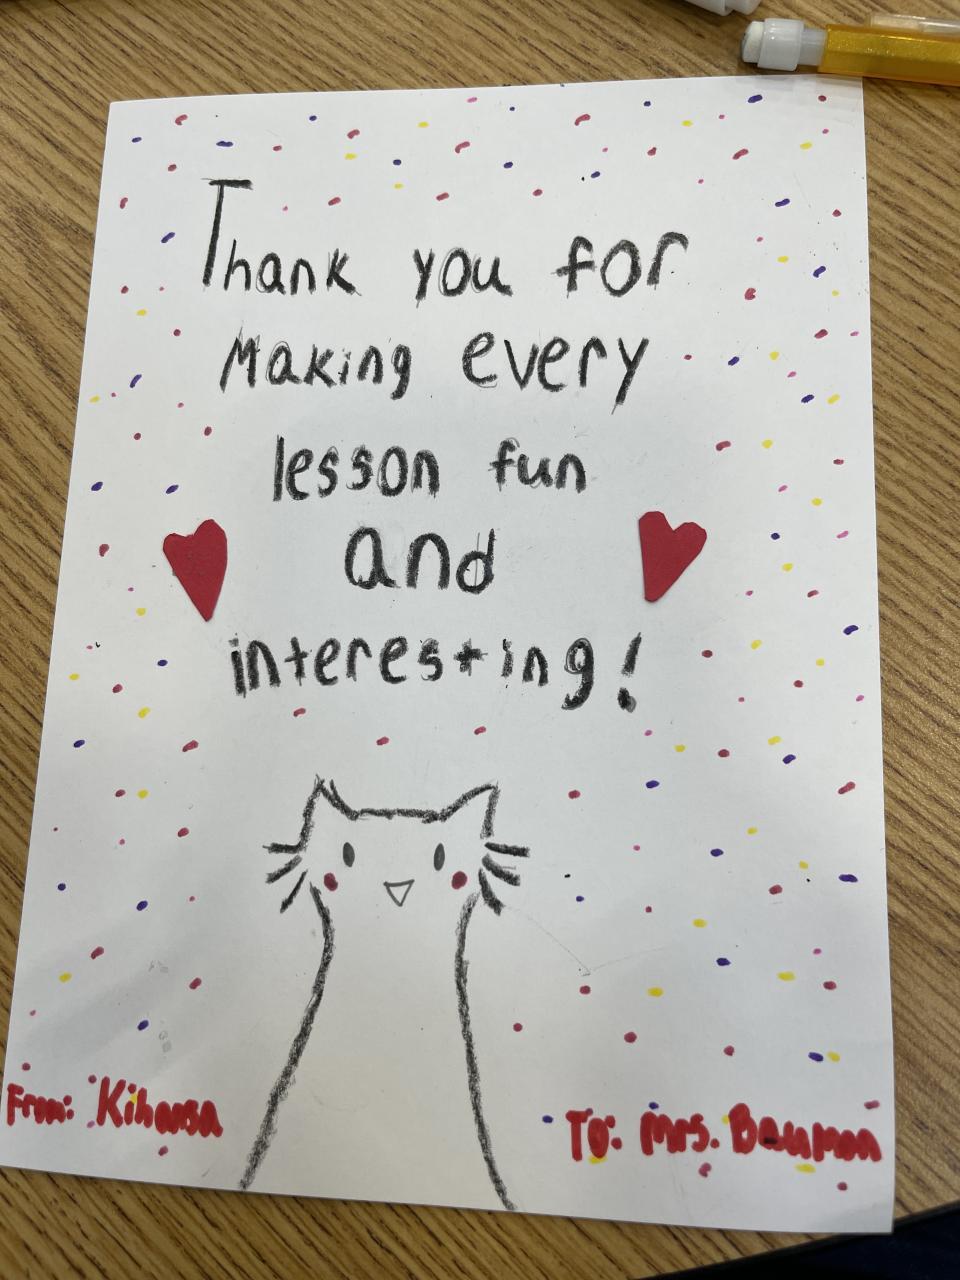 Thank you for
Making every
lesson fun
and
interesting!
From: Kihansa
To: Mrs. Bauman